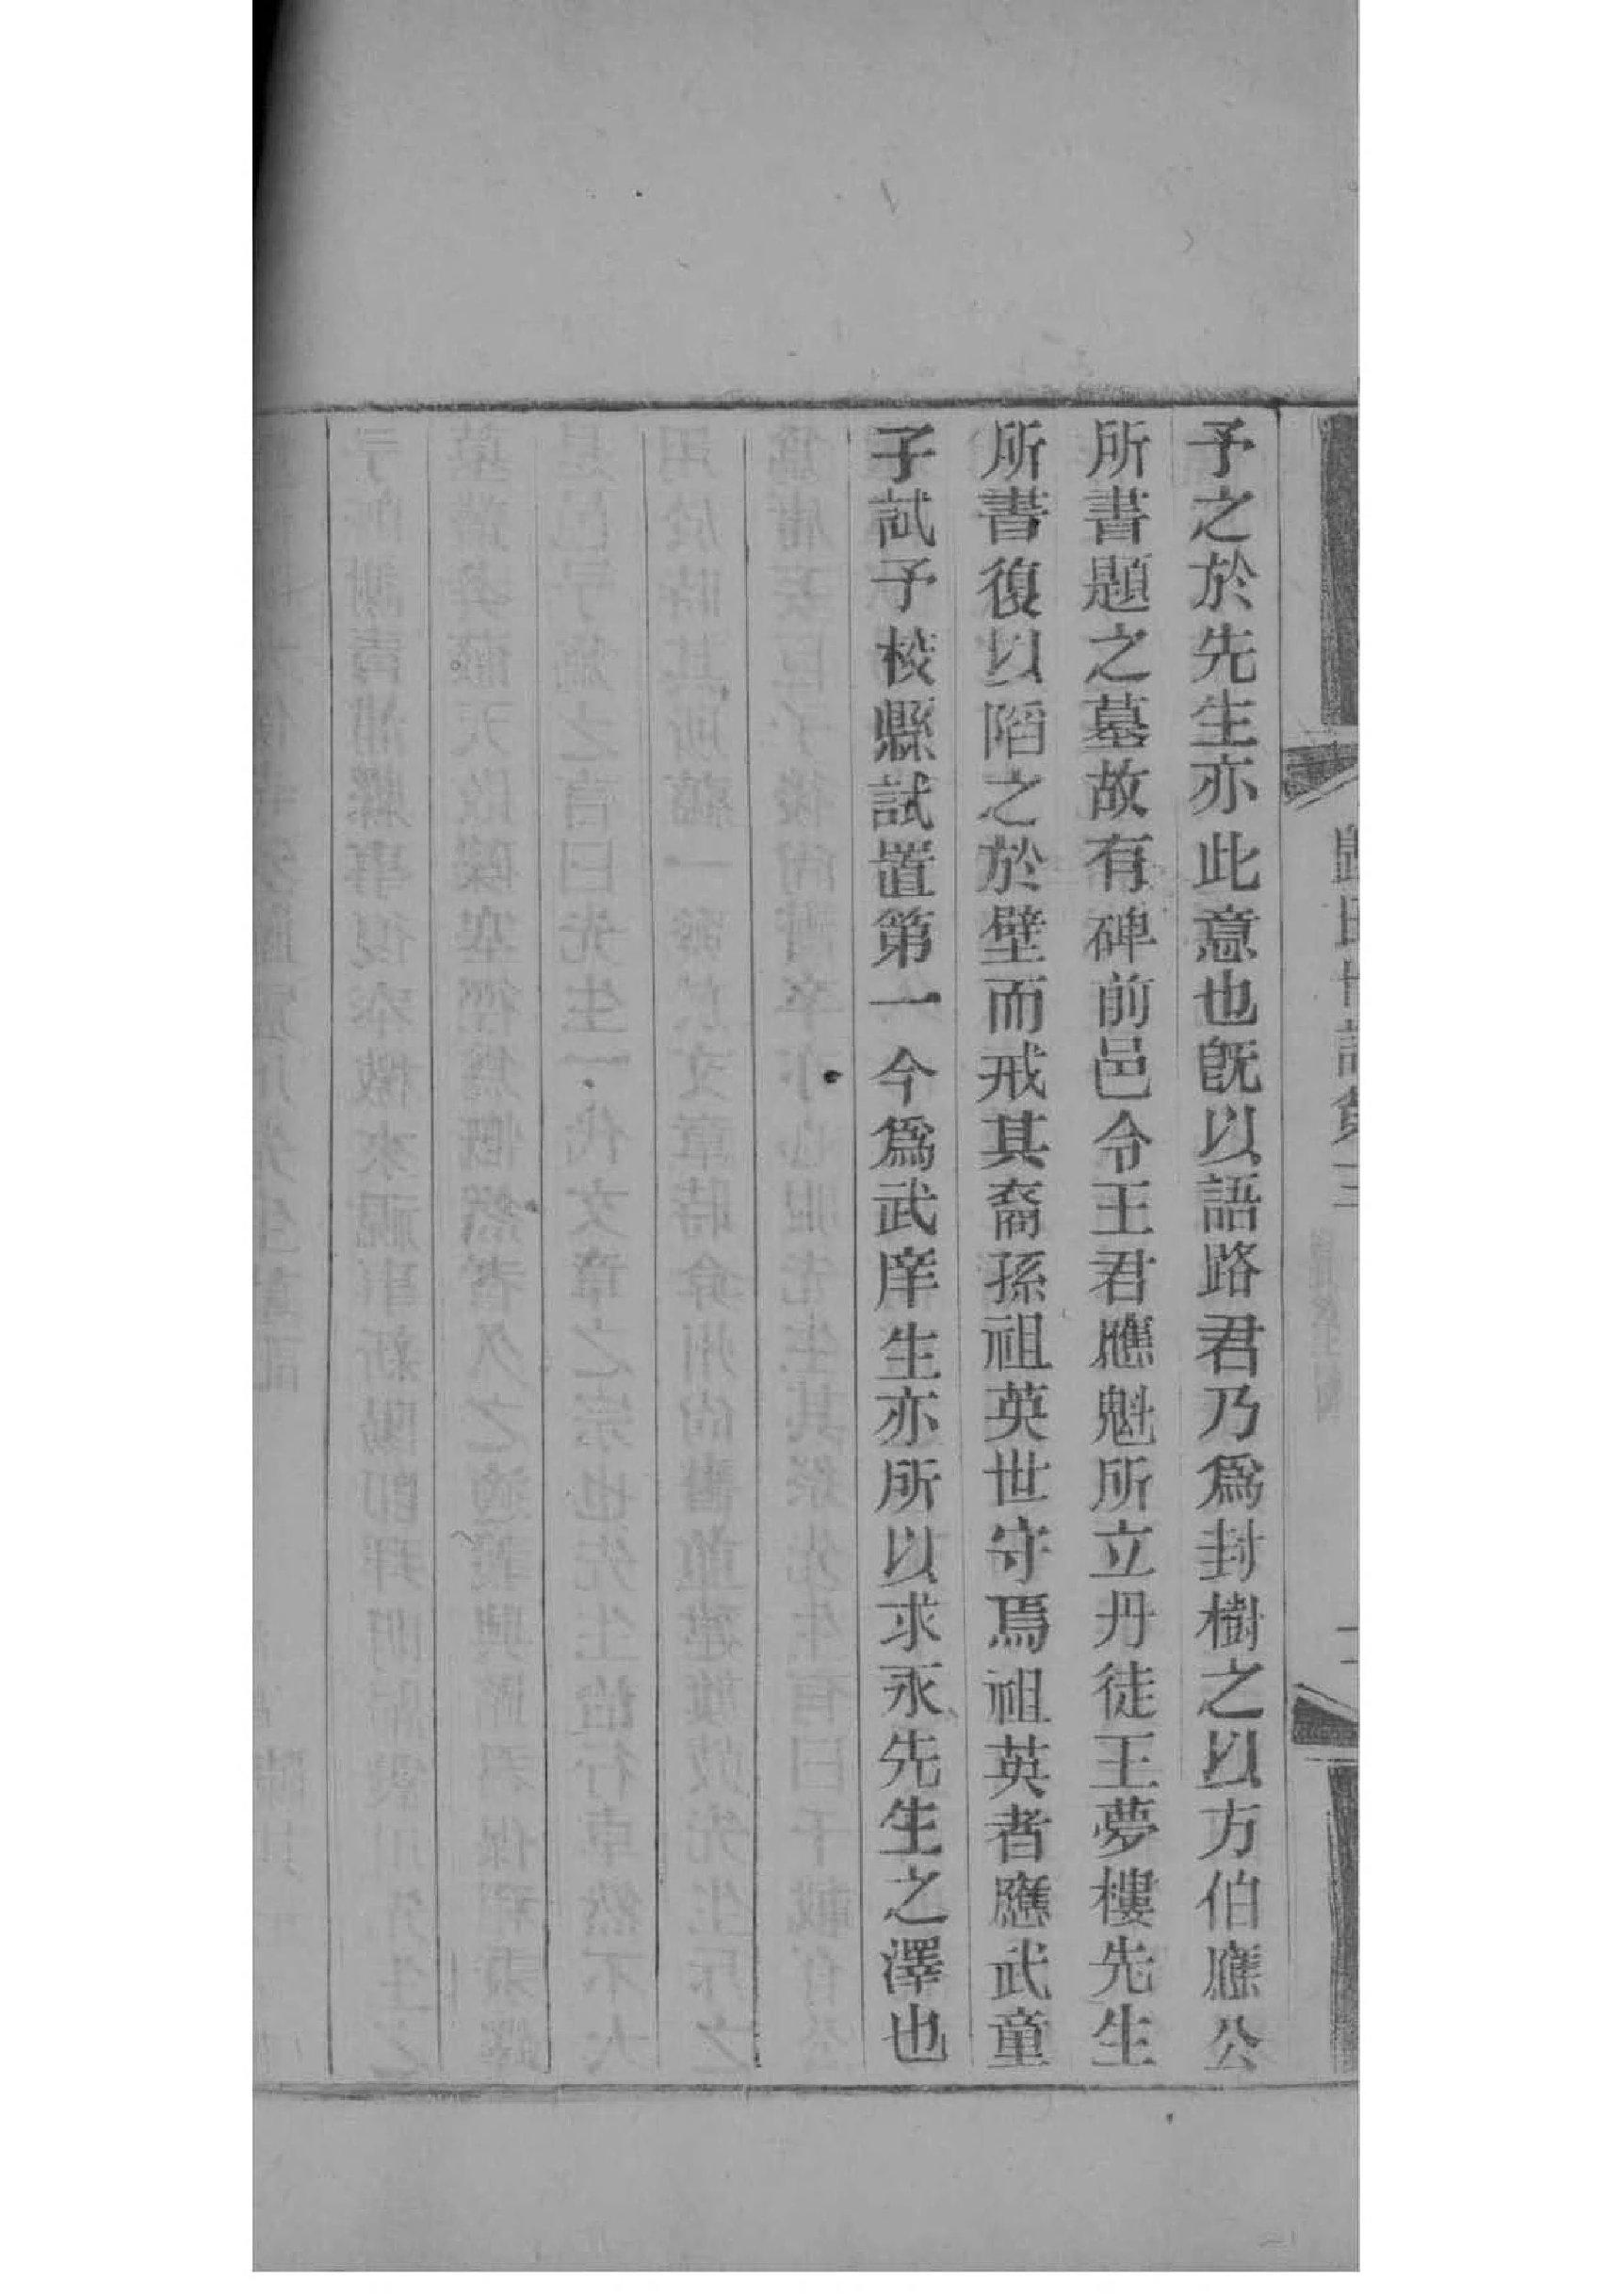 予之於先生亦此意也旣以語路君乃爲封樹之以方伯應公
所書題之墓故有碑前邑令王君應魁所立丹徒王夢樓先生
所書復以䧟之於壁而戒其裔孫祖英世守焉祖英者應武童
子試予校縣試置第一今爲武庠生亦所以求永先生之澤也